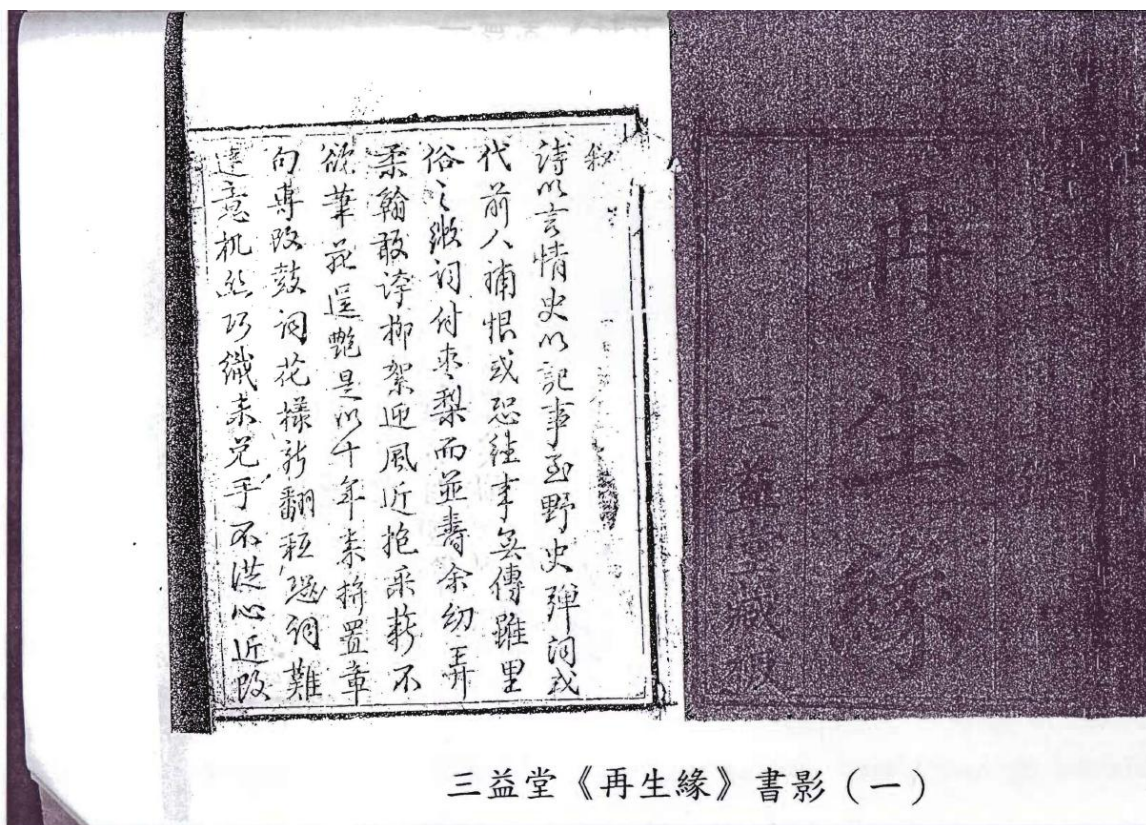 再生緣
三益堂藏板
敘
詩以言情史以記事至野史彈詞或
代前人補恨或恐往事無傳雖里
俗之微詞付枣梨而並壽余幼弄
柔翰敢誇柳絮迎風近抱采薪不
欲筆逞艷是以十年來拚置章
句專改鼓詞花樣新翻詞難
達意机絲巧織未免手不從心近改
三益堂《再生緣》書影（一）